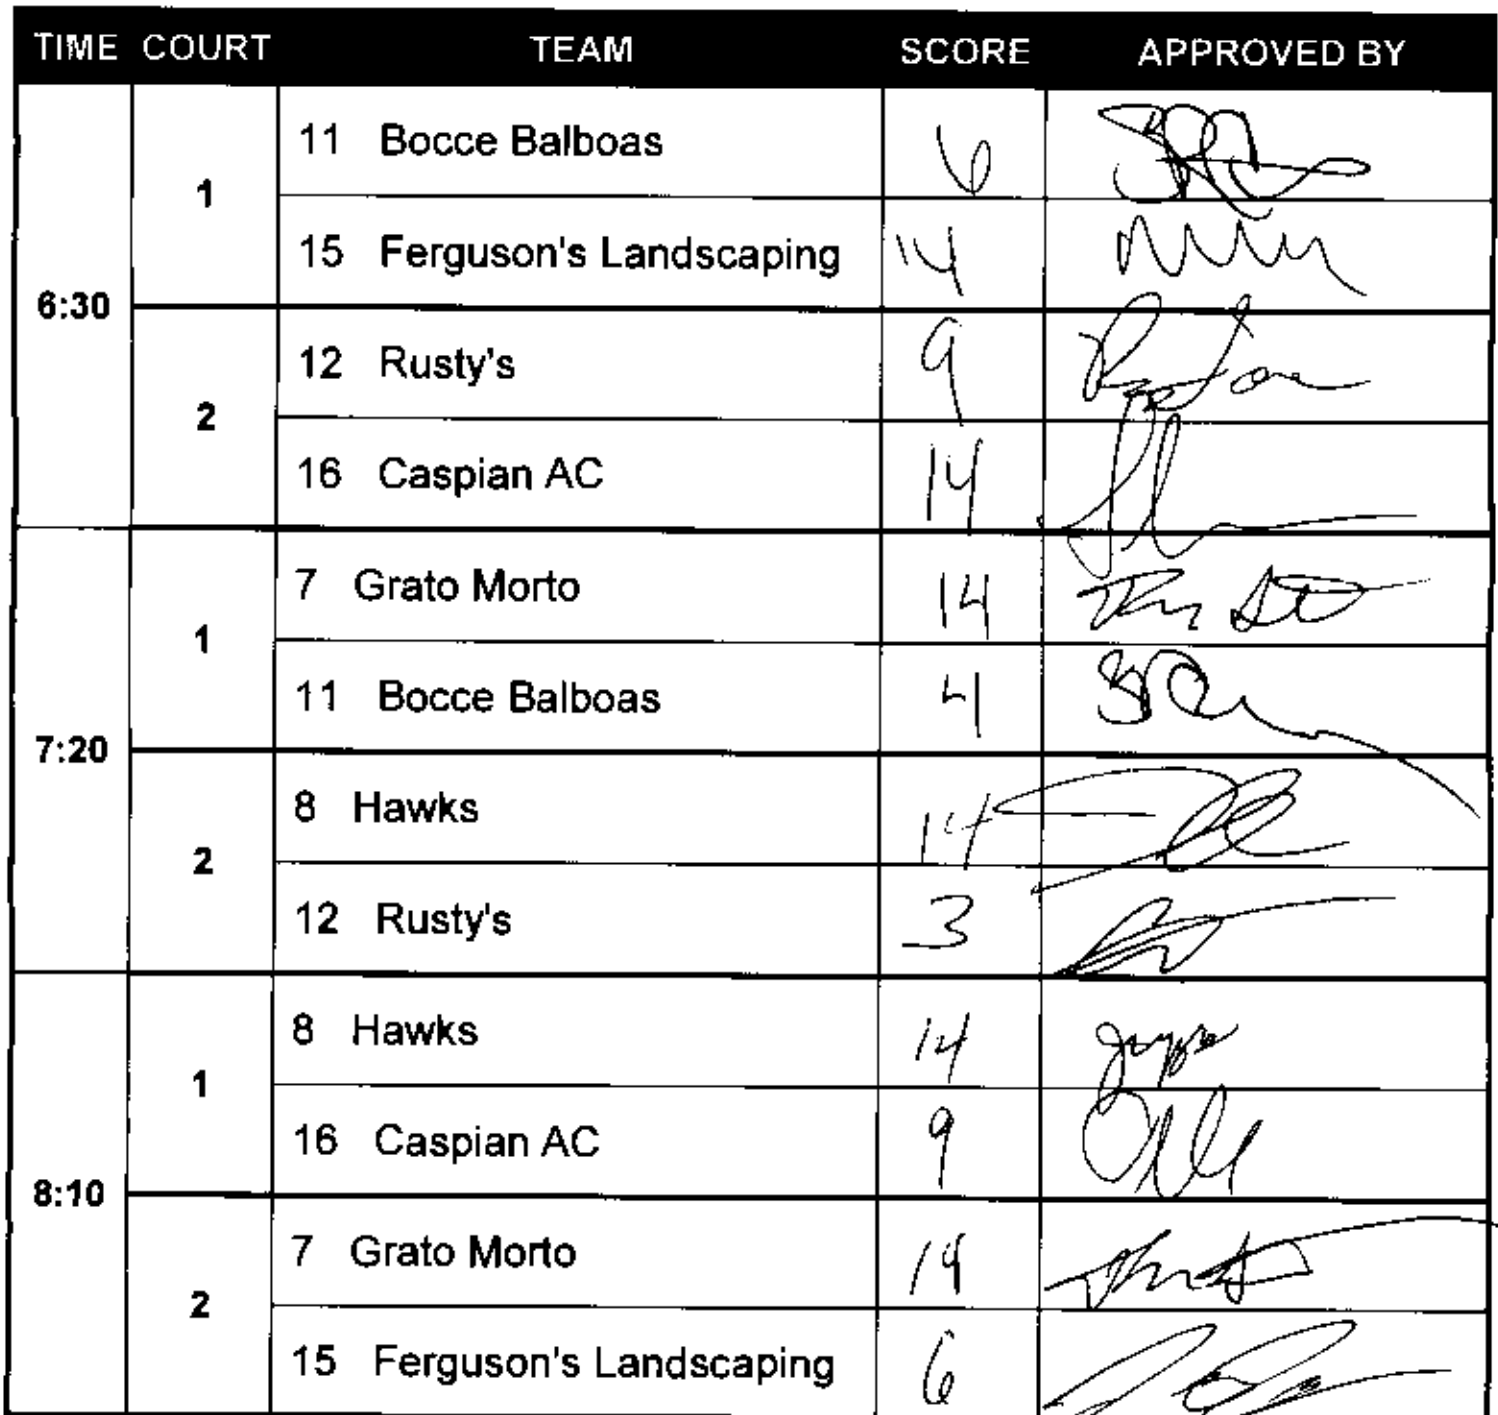 TIME COURT TEAM SCORE APPROVED BY
6:30
1
11 Bocce Balboas 6
15 Ferguson's Landscaping 14
2
12 Rusty's 9
16 Caspian AC 14
7:20
1
7 Grato Morto 14
11 Bocce Balboas 4
2
8 Hawks 14
12 Rusty's 3
8:10
1
8 Hawks 14
16 Caspian AC 9
2
7 Grato Morto 14
15 Ferguson's Landscaping 6